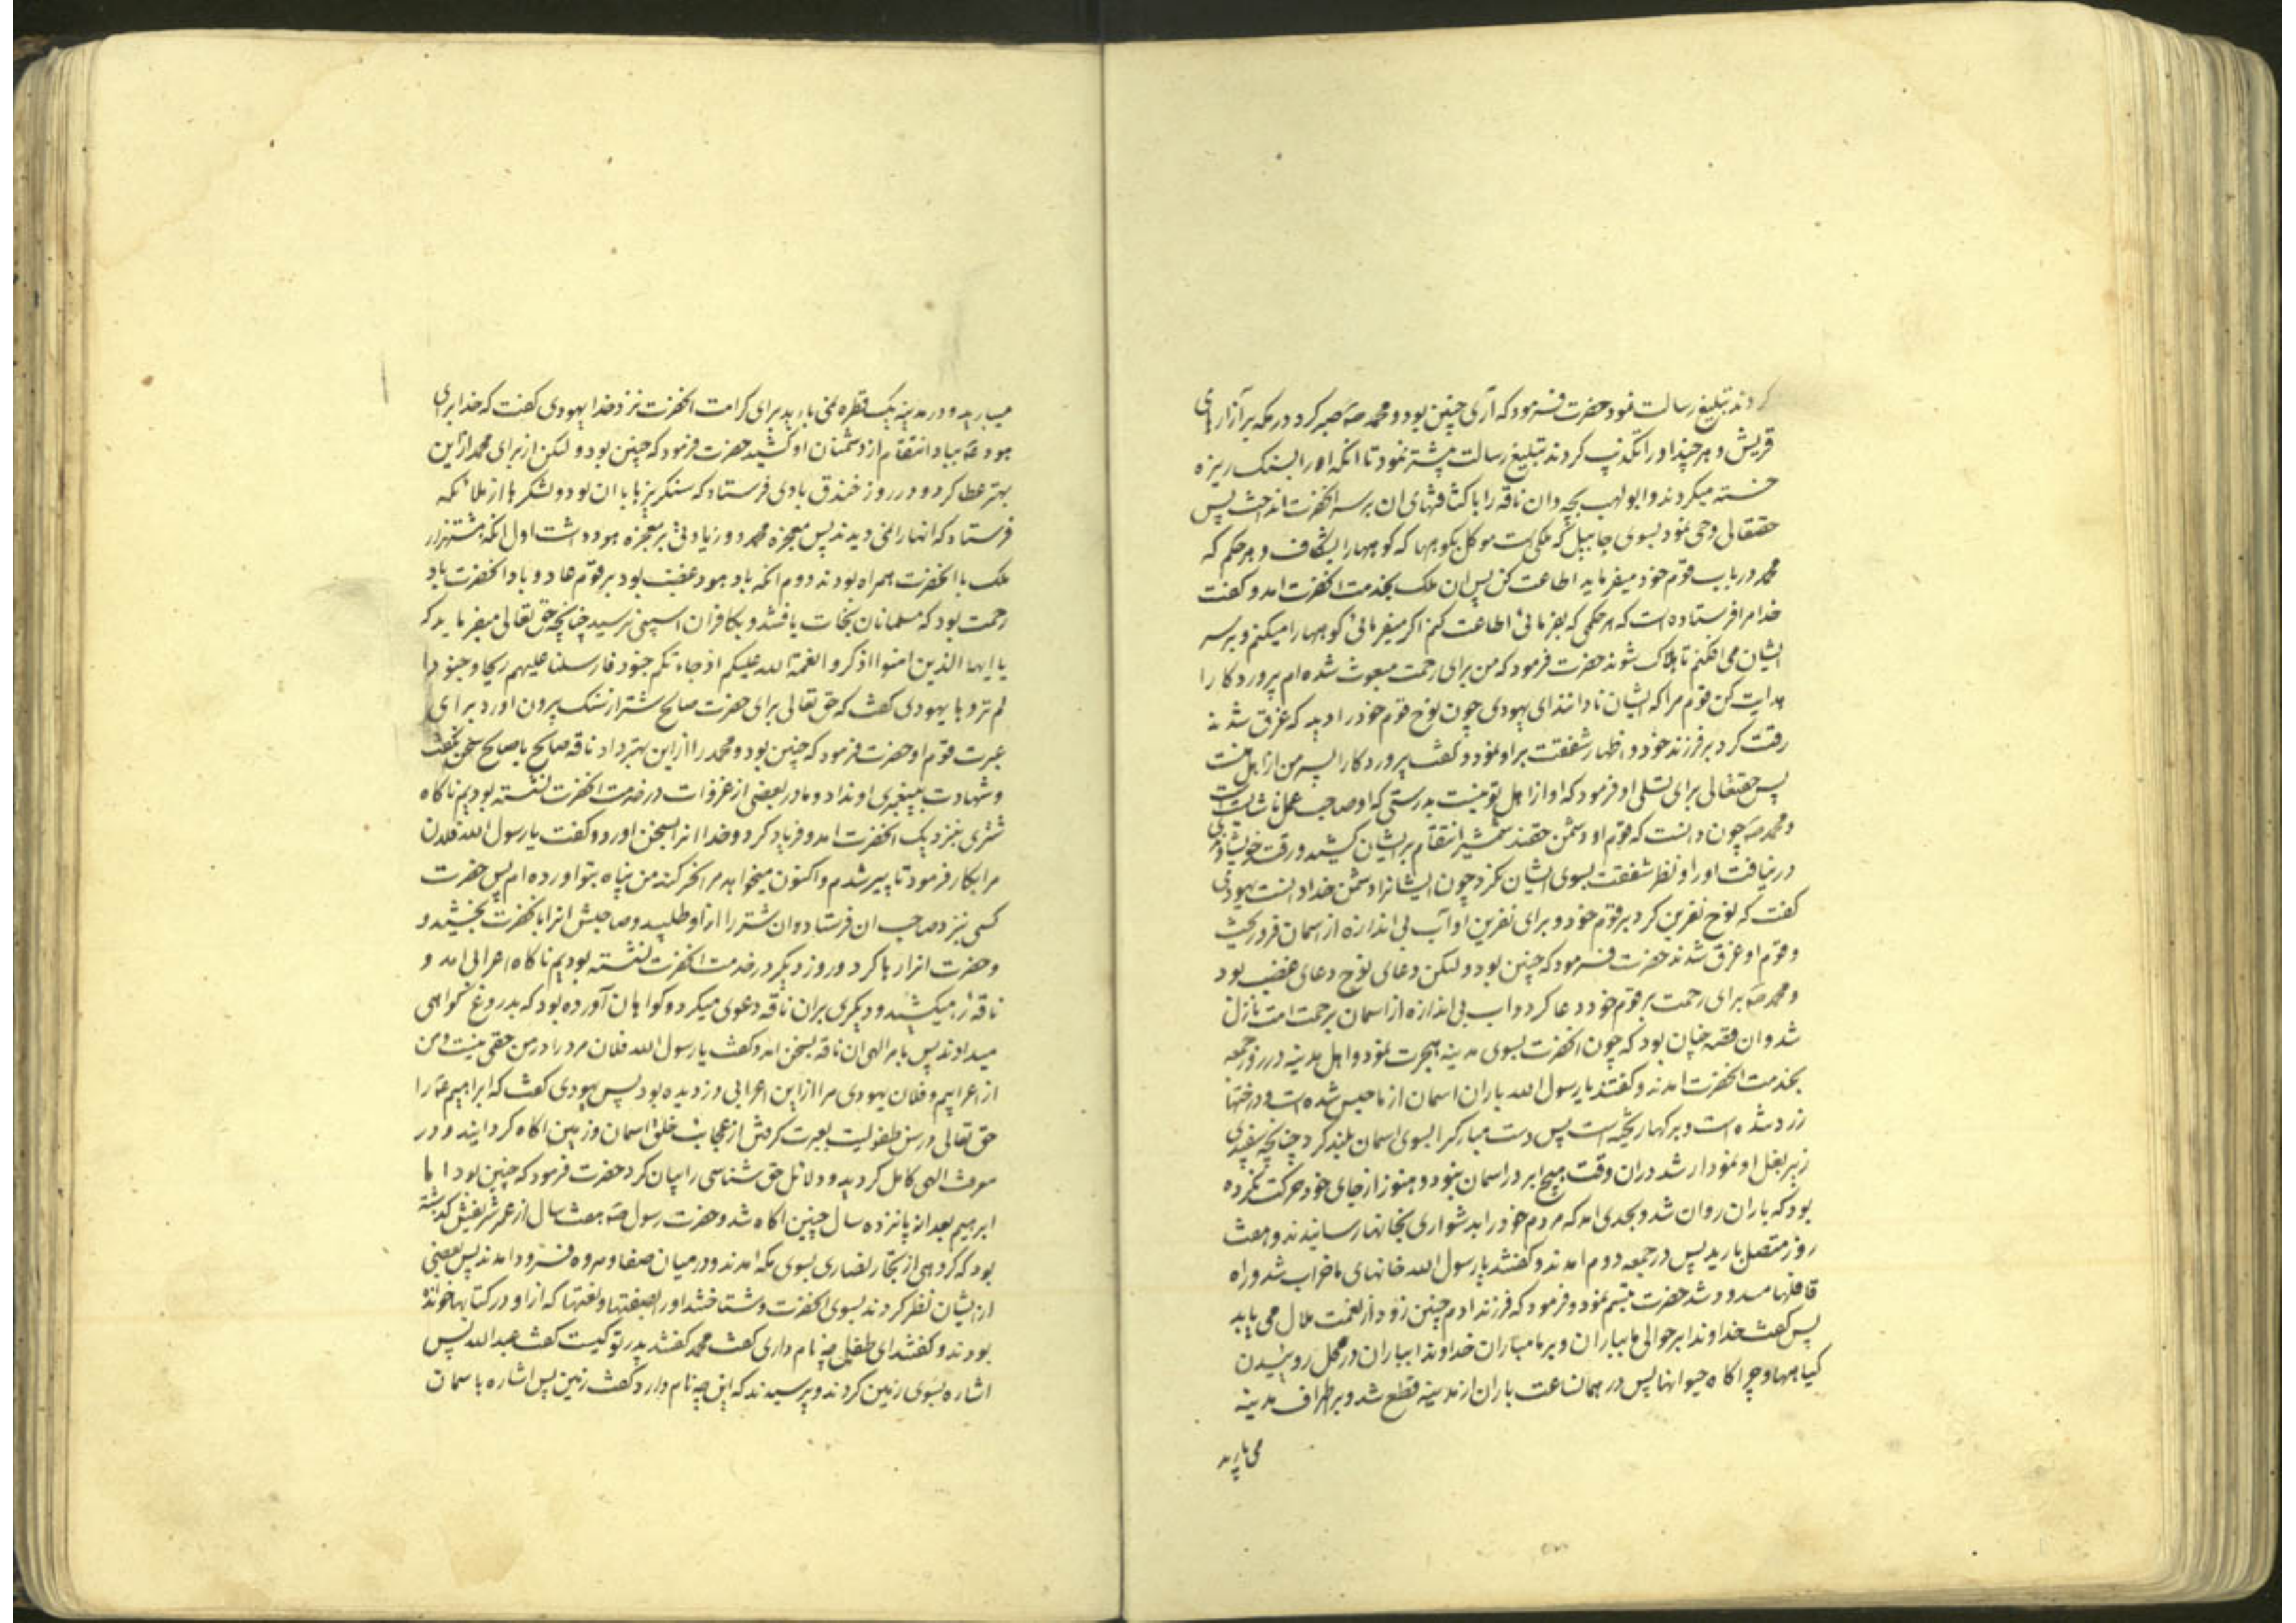 کردند تبلیغ رسالت نمود حضرت فرمود که آری چنین بود و محمد صه صبر کرد در مکه بر آزارهای
قریش و هر چند او را تکذیب کردند تبلیغ رسالت بیشتر نمود تا انکه او را بسنک ریزه
خسته میکردند و ابو لهب بچه دان ناقه را با کثافتهای ان بر سر انحضرت انداخت پس
حقتعالی وحی نمود بسوی جابیل که ملکی است موکل بکوهها که کوهها را بشکاف و هر حکم که
محمد در باب قوم خود میفرماید اطاعت کن پس ان ملک بخدمت انحضرت امد و کفت
خدا مرا فرستاده است که هر حکمی که بفرمائی اطاعت کنم اکر میفرمائی کوهها را میکنم و بر سر
ایشان می افکنم تا هلاک شوند حضرت فرمود که من برای رحمت مبعوث شده ام پروردکارا
هدایت کن قوم مرا که ایشان نادانند ای یهودی چون نوح قوم خود را دید که غرق شدند
رقت کرد بر فرزند خود و اظهار شفقت بر او نمود و کفت پروردکارا پسر من از اهل منست
پس حقتعالی برای تسلی او فرمود که او از اهل تو نیست بدرستی که او صاحب عمل ناشایست است
و محمد صه چون دانست که قوم او دشمن حقند شمشیر انتقام بر ایشان کشید و رقت خویشاوندی
در نیافت او را و نظر شفقت بسوی ایشان نکرد چون ایشانرا دشمن خدا دانست یهودی
کفت که نوح نفرین کرد بر قوم خود و برای نفرین او آب بی اندازه از اسمان فرو ریخت
و قوم او غرق شدند حضرت فرمود که چنین بود و لیکن دعای نوح دعای غضب بود
و محمد صه برای رحمت بر قوم خود دعا کرد و اب بی اندازه از اسمان برحمت امت نازل
شد و ان قصه چنان بود که چون انحضرت بسوی مدینه هجرت نمود و اهل مدینه در روز جمعه
بخدمت انحضرت امدند و کفتند یا رسول الله باران اسمان از ما حبس شده است و درختها
زرد شده است و برکها ریخته است پس دست مبارکرا بسوی اسمان بلند کرد چنانچه سفیدی
زیر بغل او نمودار شد در ان وقت هیچ ابر در اسمان نبود و هنوز از جای خود حرکت نکرده
بود که باران روان شد و بحدی امد که مردم خود را بدشواری بخانها رسانیدند و هفت
روز متصل بارید پس در جمعه دوم امدند و کفتند یا رسول الله خانهای ما خراب شد و راه
قافلها مسدود شد حضرت تبسم نمود و فرمود که فرزند ادم چنین زود از نعمت ملال می یابد
پس کفت خداوندا بر حوالی ما بباران و بر ما مباران خداوندا بباران در محل روئیدن
کیاهها و چراکاه حیوانها پس در همان ساعت باران از مدینه قطع شد و بر اطراف مدینه
می بارید
میبارید و در مدینه یک قطره نمی بارید برای کرامت انحضرت نزد خدا یهودی کفت که خدا برای
هود عه بباد انتقام از دشمنان او کشید حضرت فرمود که چنین بود و لکن از برای محمد از این
بهتر عطا کرد و در روز خندق بادی فرستاد که سنکریزها با ان بود و لشکرها از ملائکه
فرستاد که انها را نمی دیدند پس معجزه محمد دو زیادتی بر معجزه هود داشت اول انکه هشتهزار
ملک با انحضرت همراه بودند دوم انکه باد هود غضب بود بر قوم عاد و باد انحضرت باد
رحمت بود که مسلمانان نجات یافتند و بکافران اسیبی نرسید چنانچه حق تعالی میفرماید که
یا ایها الذین امنوا اذکروا نعمة الله علیکم اذ جاءتکم جنود فارسلنا علیهم ریحا و جنودا
لم تروها یهودی کفت که حق تعالی برای حضرت صالح شتر از سنک بیرون اورد برای
عبرت قوم او حضرت فرمود که چنین بود و محمد را از این بهتر داد ناقه صالح با صالح سخن نکفت
و شهادت به پیغمبری او نداد و ما در بعضی از غزوات در خدمت انحضرت نشسته بودیم ناکاه
شتری بنزدیک انحضرت امد و فریاد کرد و خدا انرا بسخن اورد و کفت یا رسول الله فلان
مرا بکار فرمود تا پیر شدم و اکنون میخواهد مرا نحر کند من پناه بتو اورده ام پس حضرت
کسی بنزد صاحب ان فرستاد و ان شتر را از او طلبید و صاحبش انرا بانحضرت بخشید و
و حضرت انرا رها کرد و روز دیکر در خدمت انحضرت نشسته بودیم ناکاه اعرابی امد و
ناقه را میکشید و دیکری بر ان ناقه دعوی میکرد و کواهان آورده بود که بدروغ کواهی
میدادند پس بامر الهی ان ناقه بسخن امد و کفت یا رسول الله فلان مرد را در من حقی نیست و من
از اعرابیم و فلان یهودی مرا از این اعرابی دزدیده بود پس یهودی کفت که ابراهیم عه را
حق تعالی در سن طفولیت بعبرت کرفتن از عجایب خلق اسمان و زمین اکاه کردانید و در
معرفت الهی کامل کردید و دلائل حق شناسی را بیان کرد حضرت فرمود که چنین بود اما
ابرهیم بعد از پانزده سال چنین اکاه شد و حضرت رسول صه هفت سال از عمر شریفش کذشته
بود که کروهی از تجار نصاری بسوی مکه امدند و در میان صفا و مروه فرود امدند پس بعضی
از ایشان نظر کردند بسوی انحضرت و شناختند او را بصفتها و نعتها که از او در کتابها خوانده
بودند و کفتند ای طفل چه نام داری کفت محمد کفتند پدر تو کیست کفت عبدالله پس
اشاره بسوی زمین کردند و پرسیدند که این چه نام دارد کفت زمین پس اشاره باسمان